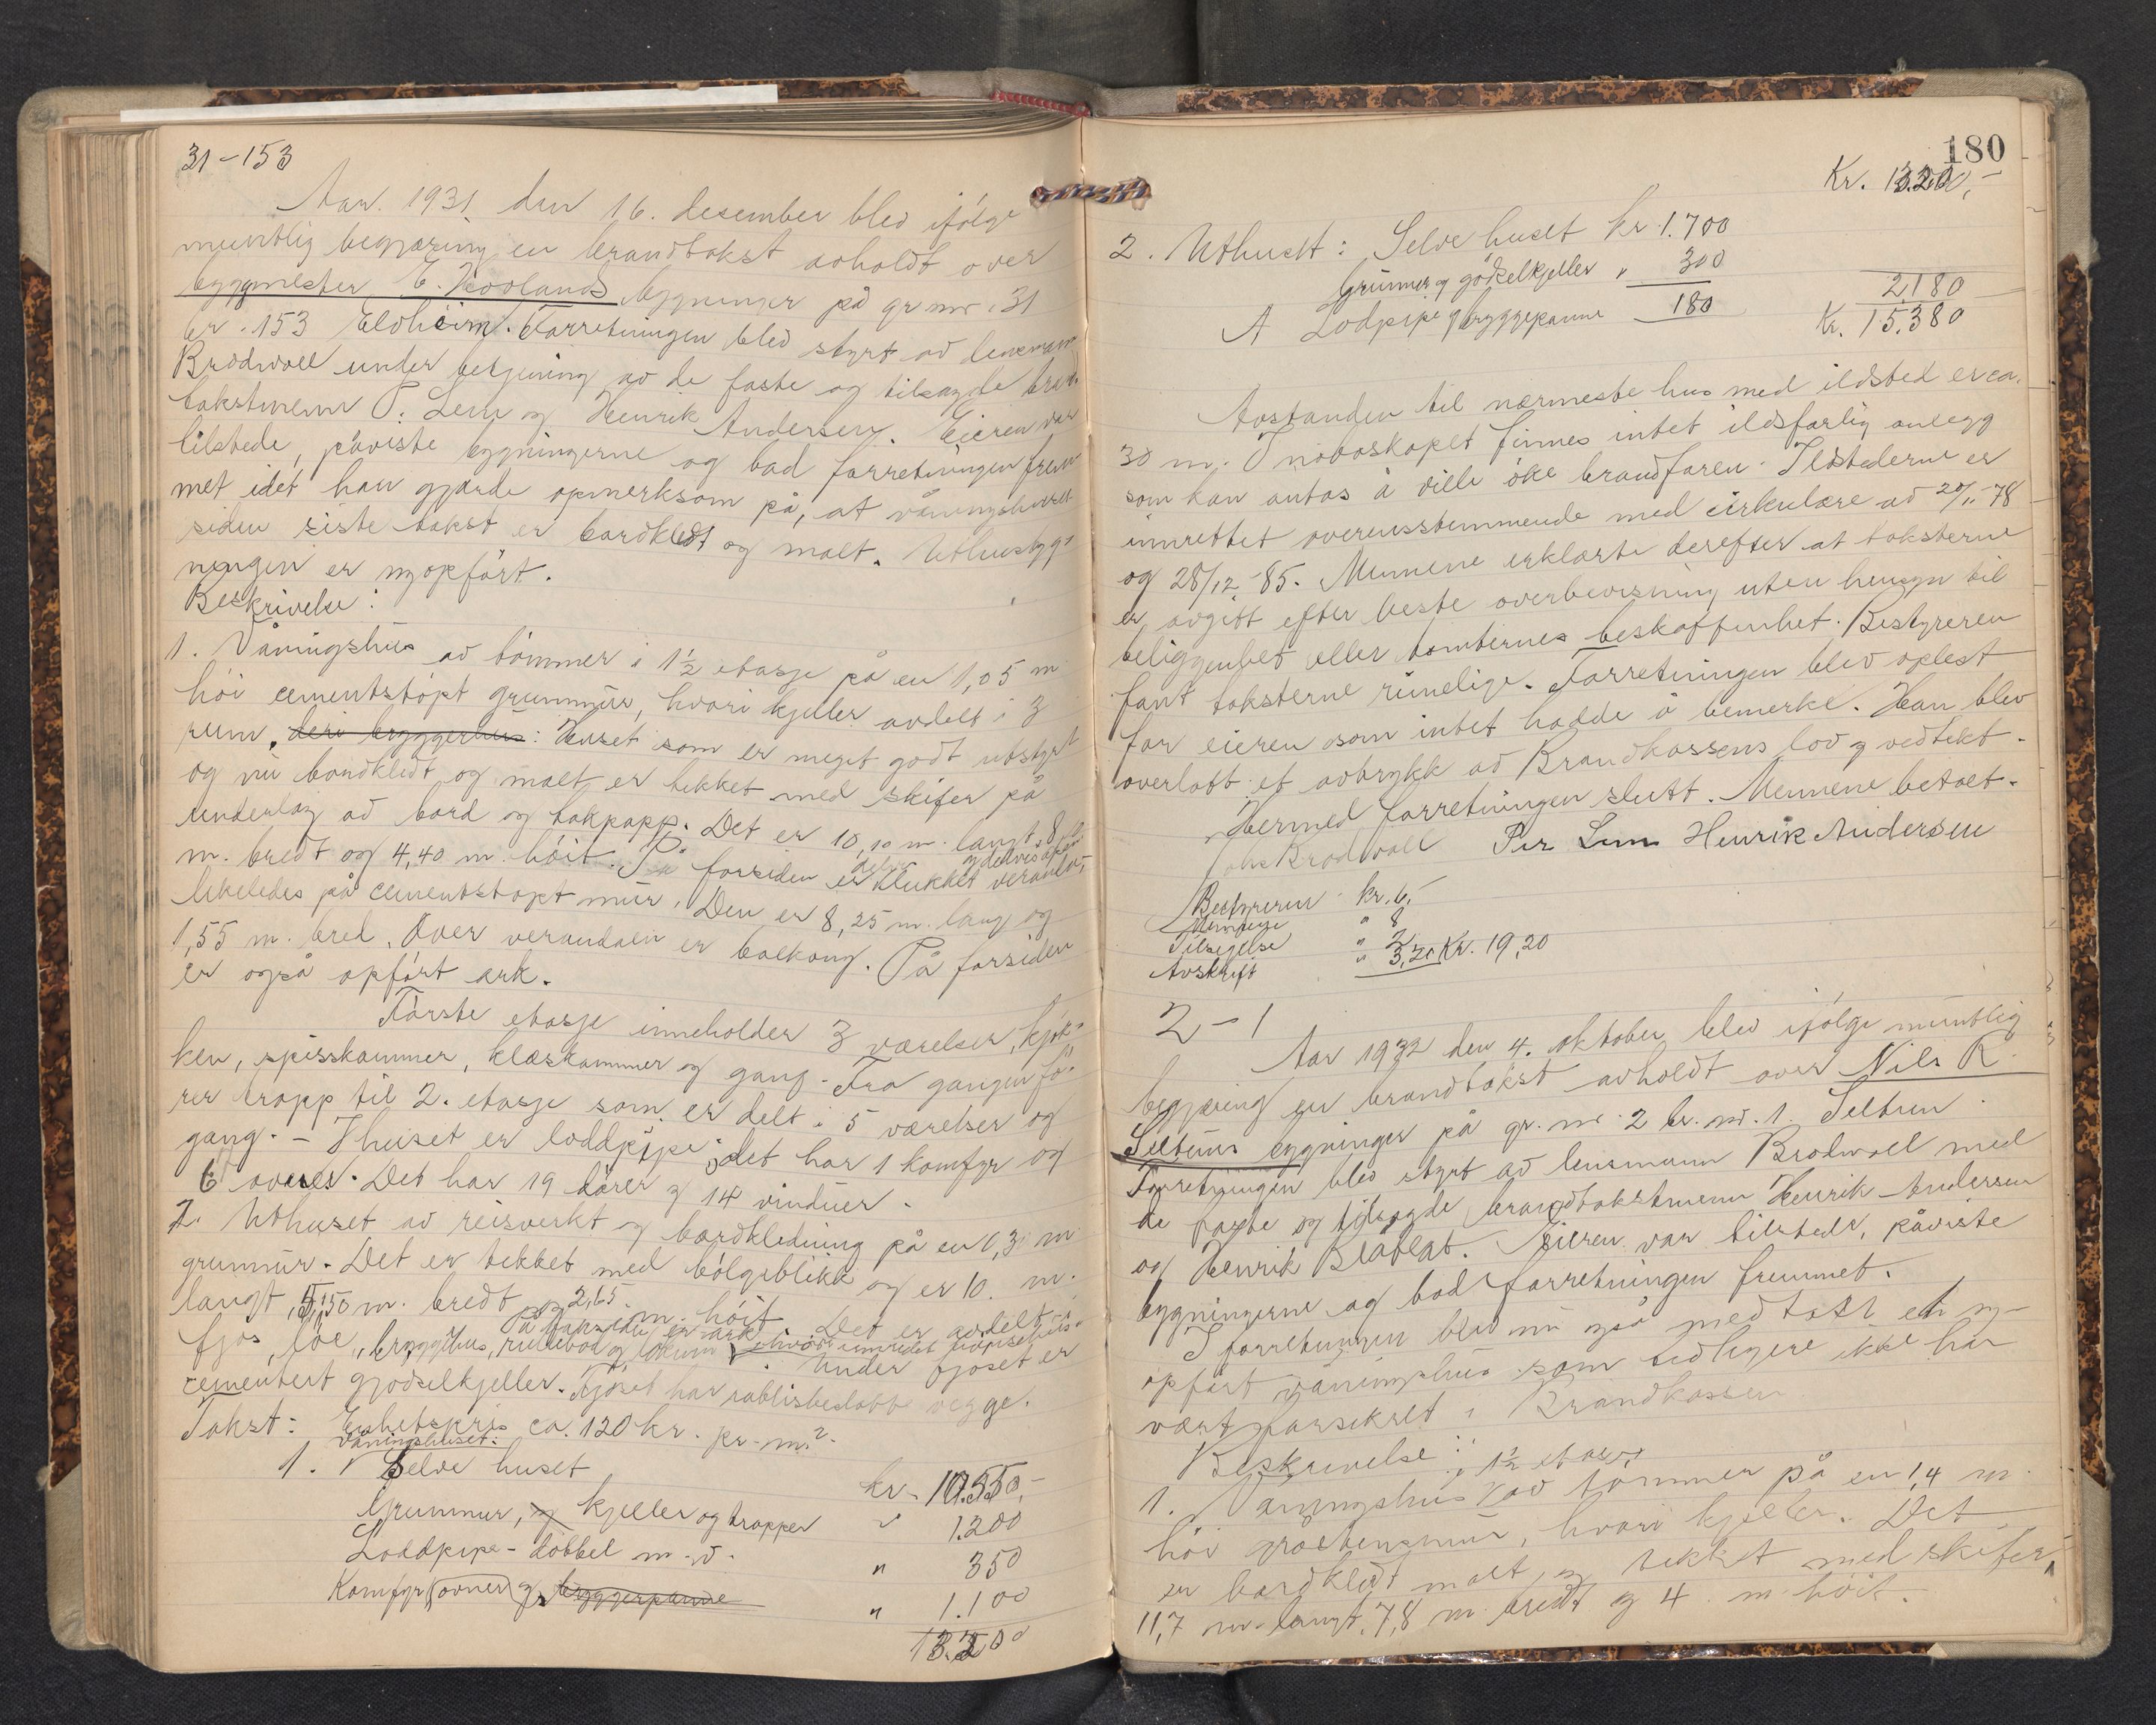 31-153
Aar 1931 den 16. desember blev ifölge
muntlig begjæring en brandtakst avholdt over
byggmester E. Hovlands bygninger på gr nr. 31
br. 153 Eldheim. Forretningen blev styrt av lensmann
Brodwall under betjening av de faste og tilsagde brand-
takstmenn P. Lem og Henrik Andersen. Eieren var
tilstede, påviste bygningerne og bad forretningen frem-
met idet han gjorde opmerksom på, at våningshuset
siden siste takst er bordkledt og malt. Uthusbyg-
ningen er nyopfört.
Beskrivelse:
1. Våningshus av tömmer i 1½ etasje på en 1,05 m
höi cementstöpt grunnmur, hvori kjeller avdelt i 3
rum, deri bryggerhus: Huset som er meget godt utstyrt
og nu bordkledt og malt er tekket med skifer på
underlag av bord og takpapp. Det er 10,10 m. langt, 8
m. bredt og 4,40 m. höit. På forsiden er delvis lukket og delvis åpen veranda,
likeledes på cementstöpt mur. Den er 8,25 m. lang og
1,55 m. bred. Over verandaen er balkong. På forsiden
er også opfört ark.
Förste etasje inneholder 3 værelser, kjök-
ken, spisskammer, klæskammer og gang. Fra gangen fö-
rer trapp til 2. etasje som er delt i 5 værelser og
gang. - I huset er loddpipe; det har 1 komfyr og
6 ovner. Det har 19 dörer og 14 vinduer.
2. Uthuset av reisverkt og bordkledning på en 0,3 m
grunnmur. Det er tekket med bölgeblikk og er 10 m.
langt, 5,50 m. bredt og 2,65 m. höit. På forsiden er ark. Det er avdelt i
fjos, löe, bryggehus, rullebod og lokum
Under fjoset er
cementert gjödselkjeller. Fjöset har rablisbeslåtte vegge.
Takst: Enhetspris ca. 120 kr. pr. m².
1. Våningshuset: Selve huset kr. 10.550,-
Grunnmur, og kjeller og trapper " 1.200
Loddpipe - dobbel m.v. " 350
Komfyr (ovner) og bryggerpanne " 1.100
13.200
180
Kr. 13.200,-
2. Uthuset: Selve huset kr 1.700
Grunnmur og gödselkjeller " 300
A Lodpipe og bryggepanne 180 2180
Kr. 15.380
Avstanden til nærmeste hus med ildsted er ca.
30 m. I naboskapet finnes intet ildsfarlig anlegg
som kan antas å ville öke brandfaren. Ildstederne er
innrettet overensstemmende med cirkulære av 20/11-78
og 28/12-85. Mennene erklærte derefter at taksterne
er avgitt efter beste overbevisning uten hensyn til
beliggenhet eller tomternes beskaffenhet. Bestyreren
fant taksterne rimelige. Forretningen blev oplest
for eieren som intet hadde å bemerke. Han blev
overlatt et avtrykk av Brandkassens lov og vedtekt.
Hermed forretningen slutt. Mennene betalt.
Joh. Brodwall Per Lem Henrik Andersen
Bestyreren kr. 6,-
Mennene " 8
Tilsigelse " 2
Avskrift " 3,20 Kr. 19,20
2-1
Aar 1932 den 4. oktober blev ifölge muntlig
begjæring en brandtakst avholdt over Nils R.
Seltuns bygninger på gr. nr. 2 br. nr. 1 Seltun.
Forretningen blev styrt av lensmann Brodwall med
de faste og tilsagde brandtakstmenn Henrik Andersen
og Henrik Blaaflat. Eieren var tilstede, påviste
bygningerne og bad forretningen fremmet.
I forretningen blev nu også medtatt et ny-
opfört våningshus som tidligere ikke har
vært forsikret i Brandkassen.
Beskrivelse:
1. Våningshus i 1½ etasje av tömmer på en 1,4 m.
höi gråstensmur, hvori kjeller. Det
er bordkledt malt og tekket med skifer,
11,7 m. langt, 7,8 m. bredt og 4 m. höit.